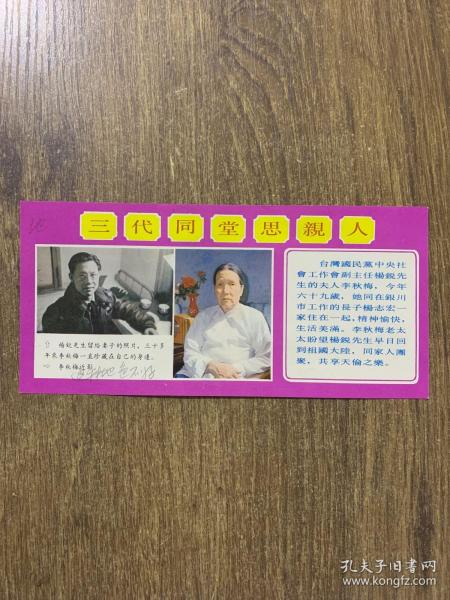 三代同堂思親人
台灣國民黨中央社
會工作會副主任楊銳先
生的夫人李秋梅,今年
六十九歲,她同在銀川
市工作的長子楊志宏一
家住在一起,精神愉快,
生活美滿。李秋梅老太
太盼望楊銳先生早日回
到祖國大陸,同家人團
聚,共享天倫之樂。
⇧ 楊銳先生留給妻子的照片,三十多
年來李秋梅一直珍藏在自己的身邊。
⇨ 李秋梅近影
孔夫子旧书网
www.kongfz.com